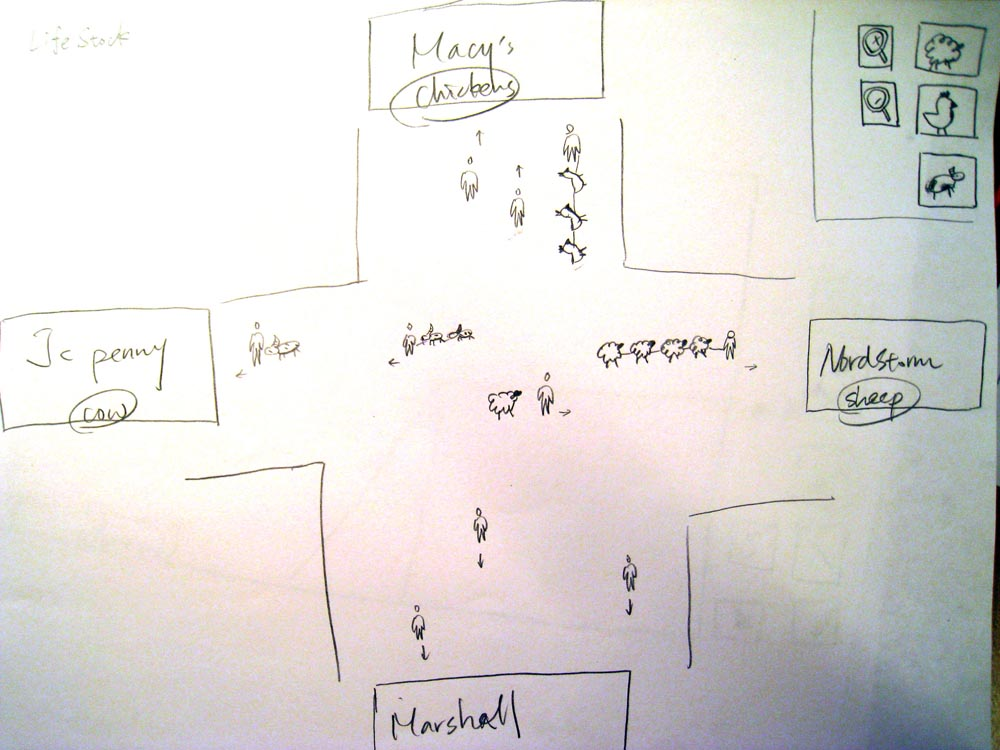 Life Stock
Macy's
chickens
Jc penny
cow
Nordstorm
sheep
Marshall